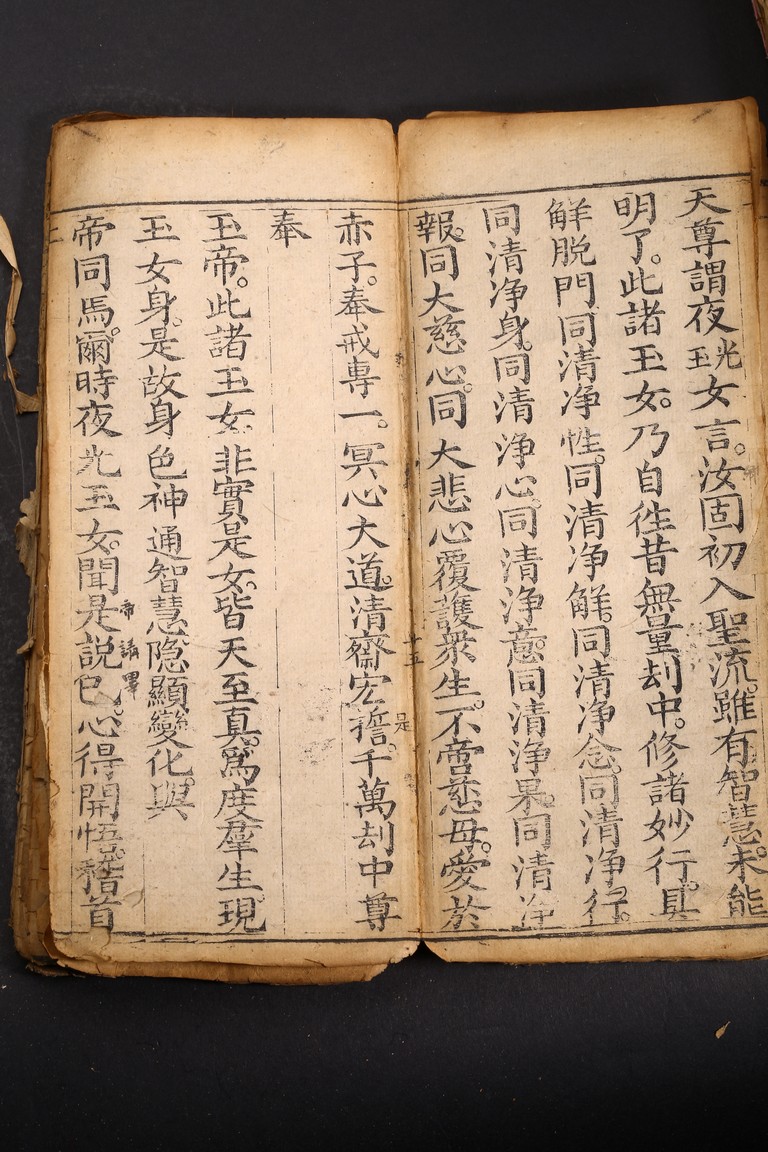 天尊謂夜光玉女言。汝固初入聖流。雖有智慧。未能
明了。此諸玉女。乃自徃昔無量刦中。修諸妙行。具
觧脱門。同清净性。同清净觧。同清净念。同清净行。
同清净身。同清净心。同清净意。同清净果。同清净
報。同大慈心。同大悲心。覆護衆生。不啻慈母。愛於
赤子。奉戒專一。冥心大道。清齋宏。千萬刦中尊
奉
玉帝。此諸玉女。非實是女。皆天至真。爲度羣生。現
玉女身。是故身色神通智慧隐顯變化與
帝同焉。爾時夜光玉女。聞是説已。心得開悟。稽首
十五
是